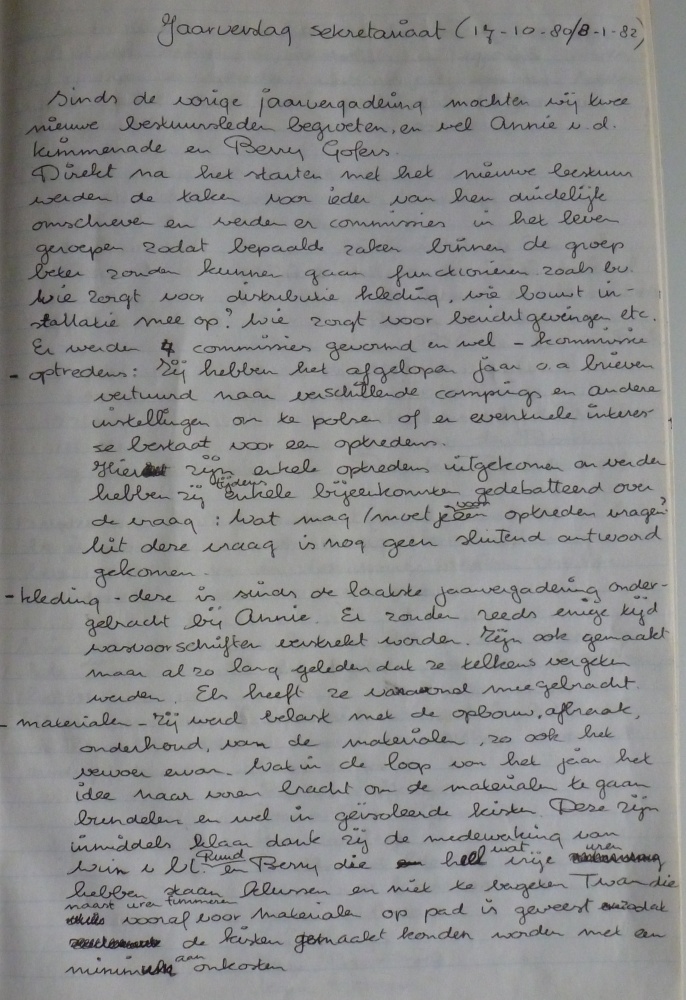 Jaarverslag sekretariaat (17-10-80/8-1-82)
Sinds de vorige jaarvergadering mochten wij twee
nieuwe bestuursleden begroeten, en wel Annie v.d.
Kimmenade en Berry Gofers.
Direkt na het starten met het nieuwe bestuur
werden de taken voor ieder van hen duidelijk
omschreven en werden er commissies in het leven
geroepen zodat bepaalde zaken binnen de groep
beter zouden kunnen gaan functionieren zoals bv.
Wie zorgt voor distributie kleding, wie bouwt in-
stallatie mee op? Wie zorgt voor berichtgevingen etc.
Er werden 4 commissies gevormd en wel - kommissie
- optredens: Zij hebben het afgelopen jaar o.a brieven
verstuurd naar verschillende campings en andere
instellingen om te polsen of er eventuele interes-
se bestaat voor een optredens.
Hier zijn enkele optredens uitgekomen en verder
hebben zij tijdens enkele bijeenkomsten gedebatteerd over
de vraag: Wat mag/moet je voor een optreden vragen?
Uit deze vraag is nog geen sluitend antwoord
gekomen.
- kleding - deze is sinds de laatste jaarvergadering onder-
gebracht bij Annie. Er zouden reeds enige tijd
wasvoorschriften verstrekt worden. Zijn ook gemaakt
maar al zo lang geleden dat ze telkens vergeten
werden. Els heeft ze vanavond meegebracht.
- materialen - Zij werd belast met de opbouw, afbraak,
onderhoud, van de materialen, zo ook het
vervoer ervan. Wat in de loop van het jaar het
idee naar voren bracht om de materialen te gaan
bundelen en wel in geïsoleerde kisten. Deze zijn
inmiddels klaar dank zij de medewerking van
Wim v Ruud en Berry die heel wat vrije uren
hebben staan klussen en niet te vergeten Twan die
naast uren timmeren
vooraf voor materialen op pad is geweest zodat
de kisten gemaakt konden worden met een
minimum aan onkosten